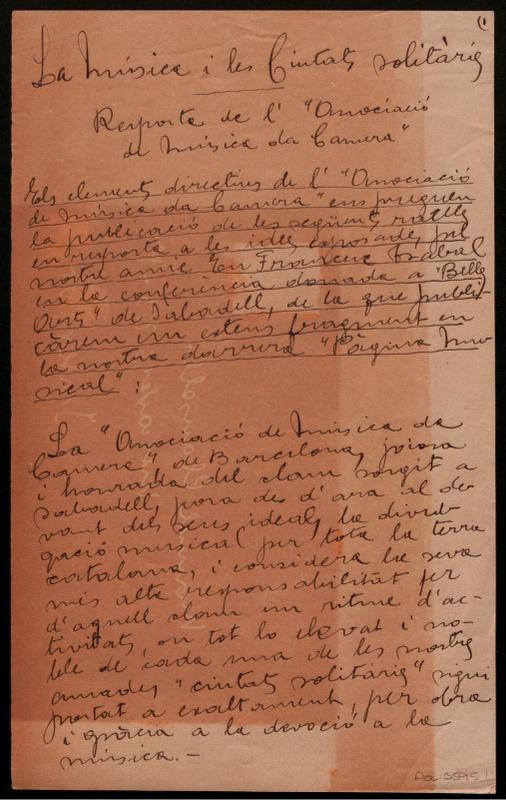 (1
La Música i les Ciutats solitàries
Resposta de l' "Associació
de Música da Camera"
Els elements directius de l' "Associació
de Música da Camera" ens preguen
la publicació de les següents ratlles
en resposta a les idees exposades pel
nostre amic En Francesc Trabal
en la conferència donada a "Belles
Arts" de Sabadell, de la que publi-
càrem un extens fragment en
la nostra darrera "Pàgina Mu
sical":
La "Associació de Música da
Camera" de Barcelona, joiosa
i honrada del clam sorgit a
Sabadell, posa des d'ara al da
vant dels seus ideals la divul
gació musical per tota la terra
catalana, i considera la seva
més alta responsabilitat fer
d'aquell clam un ritme d'ac-
tivitats, on tot lo elevat i no-
ble de cada una de les nostres
amades "ciutats solitàries" sigui
portat a exaltament, per obra
i gràcia a la devoció a la
música.-